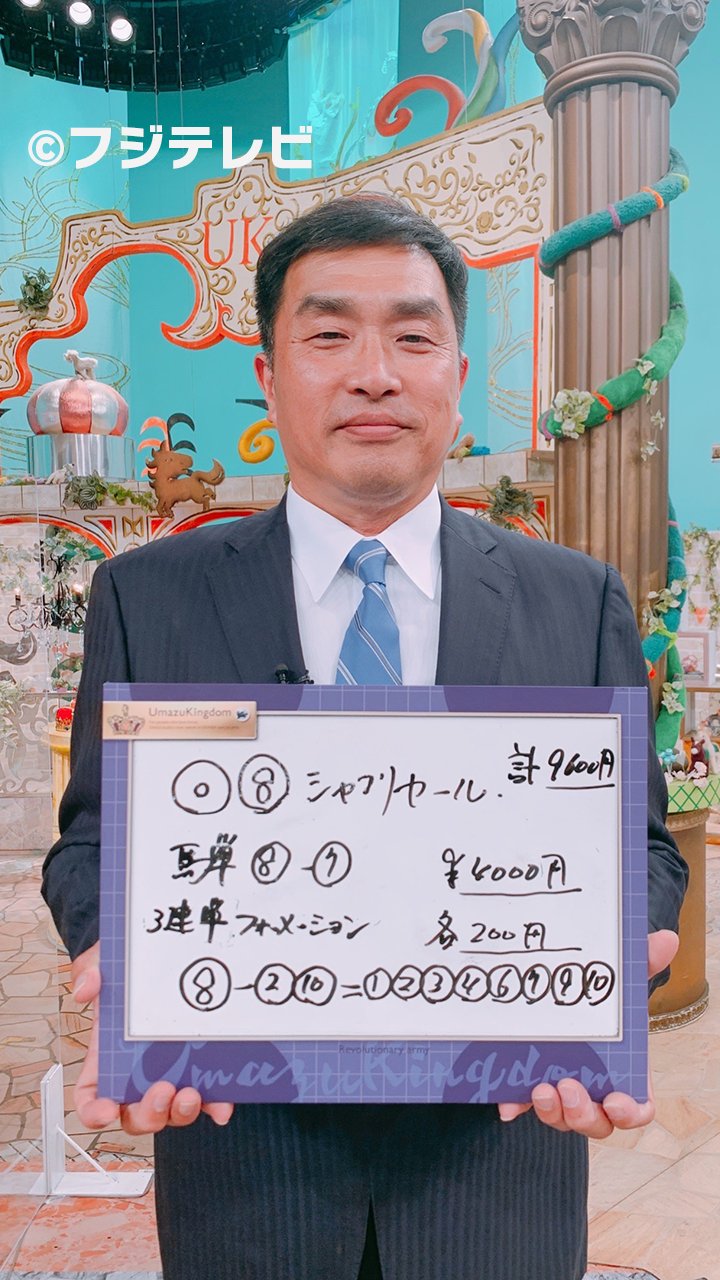 ©フジテレビ
UK
UmazuKingdom
◎ ⑧ シャブリヤール. 計 9600円
馬単 ⑧-⑦ ¥4000円
3連単 フォーメーション 各 200円
⑧-②⑩=①②③④⑥⑦⑨⑩
Revolutionary army
UmazuKingdom